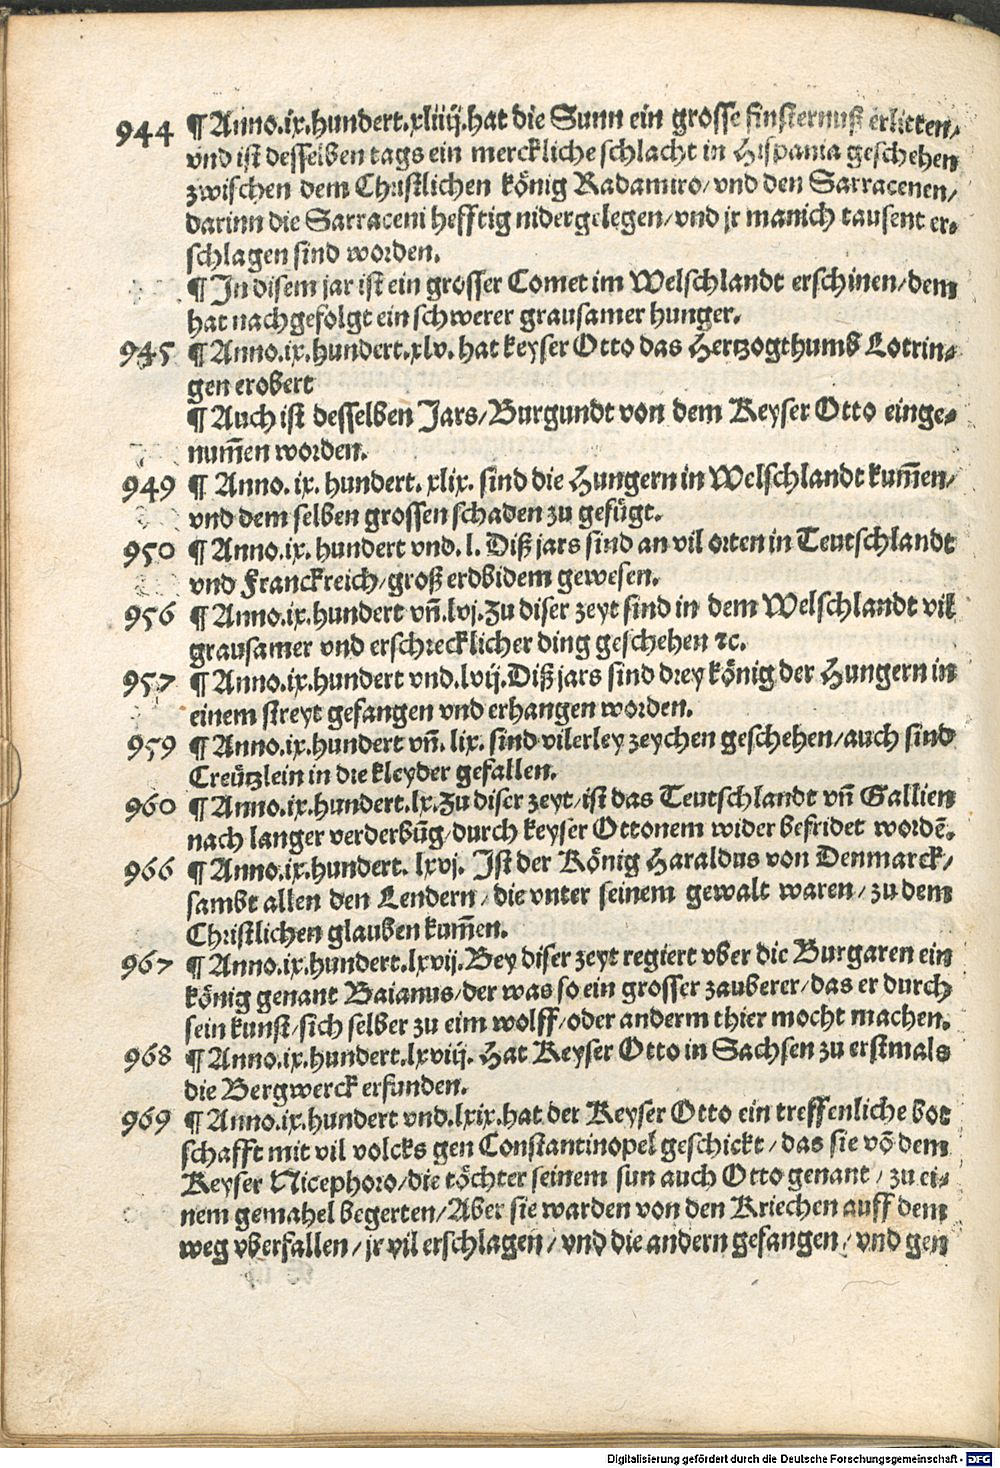 944 ¶ Anno.ix.hundert.xliiij.hat die Sunn ein grosse finsternuß erlitten/
vnd ist desselben tags ein merckliche schlacht in Hispania geschehen
zwischen dem Christlichen könig Radamiro/vnd den Sarracenen/
darinn die Sarraceni hefftig nidergelegen/vnd jr manich tausent er-
schlagen sind worden.
¶ In disem jar ist ein grosser Comet im Welschlandt erschinen/dem
hat nachgefolgt ein schwerer grausamer hunger.
945 ¶ Anno.ix.hundert.xlv. hat keyser Otto das Hertzogthumb Lotrin-
gen erobert
¶ Auch ist desselben Jars/Burgundt von dem Keyser Otto einge-
num̄en worden.
949 ¶ Anno. ix. hundert. xlix. sind die Hungern in Welschlandt kum̄en/
vnd dem selben grossen schaden zu gefügt.
950 ¶ Anno.ix. hundert vnd. l. Diß jars sind an vil orten in Teutschlandt
vnd Franckreich/groß erdbidem gewesen.
956 ¶ Anno.ix.hundert vn̄.lvj.Zu diser zeyt sind in dem Welschlandt vil
grausamer vnd erschrecklicher ding geschehen ꝛc.
957 ¶ Anno.ix.hundert vnd.lvij.Diß jars sind drey könig der Hungern in
einem streyt gefangen vnd erhangen worden.
959 ¶ Anno.ix.hundert vn̄. lix. sind vilerley zeychen geschehen/auch sind
Creützlein in die kleyder gefallen.
960 ¶ Anno.ix.hundert.lx.Zu diser zeyt/ist das Teutschlandt vn̄ Gallien
nach langer verderbūg/durch keyser Ottonem wider befridet wordē.
966 ¶ Anno.ix.hundert. lxvj. Ist der König Haraldus von Denmarck/
sambt allen den Lendern/die vnter seinem gewalt waren/zu dem
Christlichen glauben kum̄en.
967 ¶ Anno.ix.hundert.lxvij.Bey diser zeyt regiert vber die Burgaren ein
könig genant Baianus/der was so ein grosser zauberer/das er durch
sein kunst/sich selber zu eim wolff/oder anderm thier mocht machen.
968 ¶ Anno.ix.hundert.lxviij. Hat Keyser Otto in Sachsen zu erstmals
die Bergwerck erfunden.
969 ¶ Anno.ix.hundert vnd.lxix.hat der Keyser Otto ein treffenliche bot
schafft mit vil volcks gen Constantinopel geschickt/das sie vō dem
Keyser Nicephoro/die töchter seinem sun auch Otto genant/zu ei-
nem gemahel begerten/Aber sie warden von den Kriechen auff dem
weg vberfallen/jr vil erschlagen/vnd die andern gefangen/vnd gen
Digitalisierung gefördert durch die Deutsche Forschungsgemeinschaft - DFG